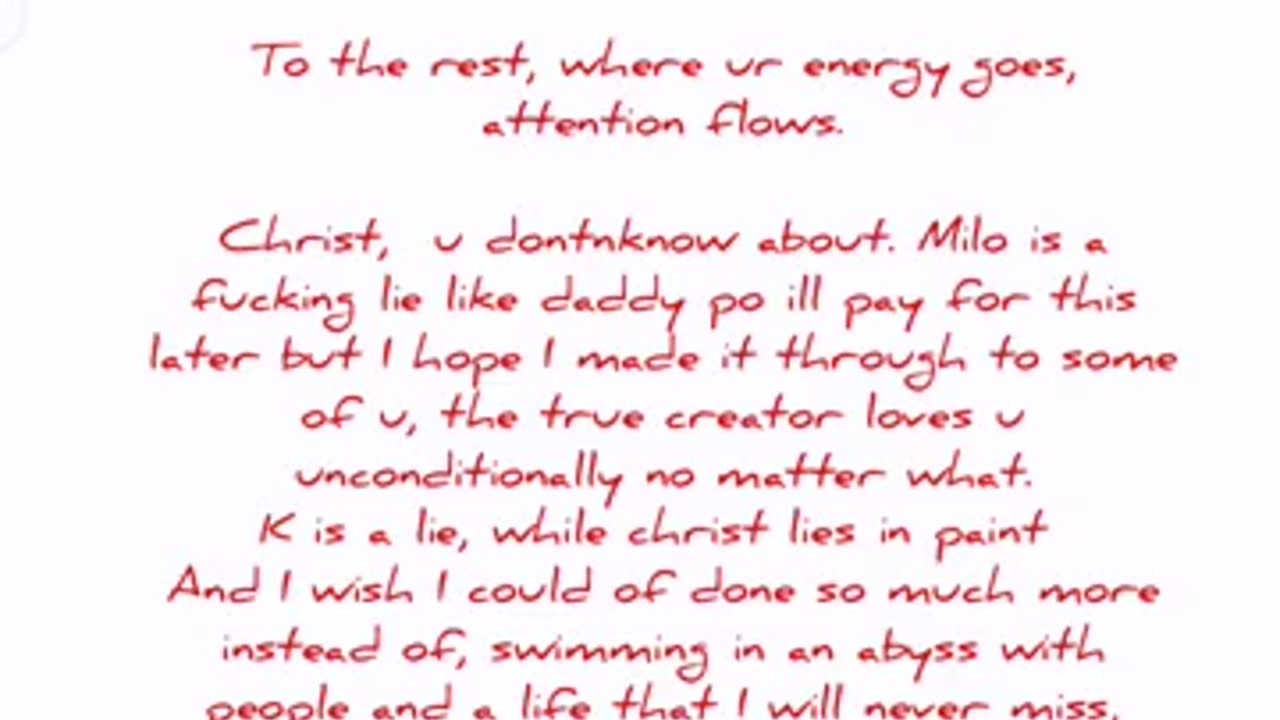 To the rest, where ur energy goes,
attention flows.
Christ, u dontnknow about. Milo is a
fucking lie like daddy po ill pay for this
later but I hope I made it through to some
of u, the true creator loves u
unconditionally no matter what.
K is a lie, while christ lies in paint
And I wish I could of done so much more
instead of, swimming in an abyss with
people and a life that I will never miss.